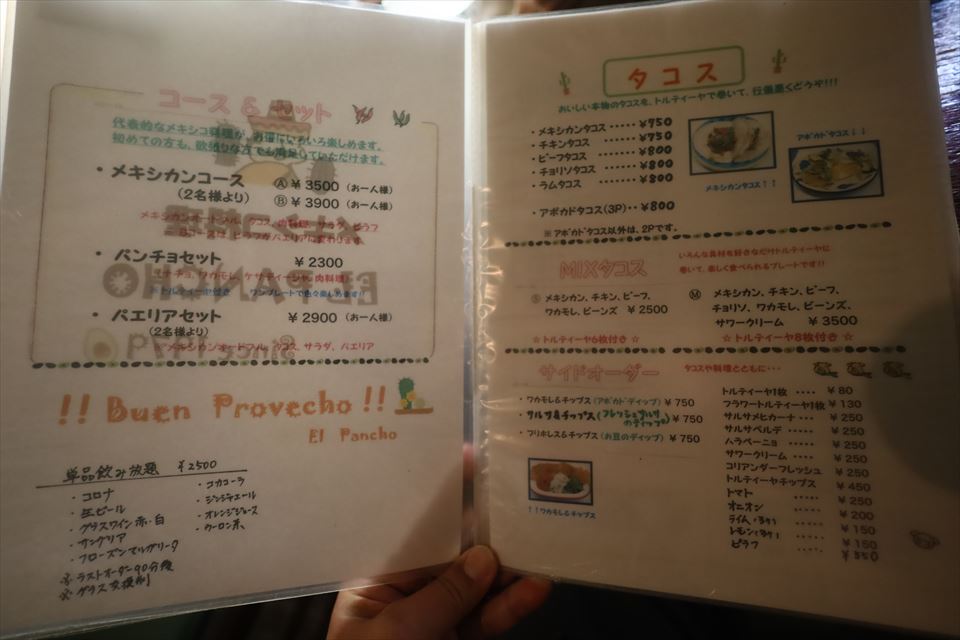 コース & セット
代表的なメキシコ料理が、お得にいろいろ楽しめます。
初めての方も、欲張りな方でも満足していただけます。
・メキシカンコース Ⓐ ¥ 3500 (お一人様)
(2名様より) Ⓑ ¥ 3900 (お一人様)
メキシカンオードブル、タコス、肉料理、サラダ、ピラフ
Bコースは、ピラフがパエリアに変わります。
・パンチョセット ¥ 2300
ナチョ、ワカモレ、ケサディージャ、肉料理
※トルティーヤ付き ワンプレートで色々楽しめます!!
・パエリアセット ¥ 2900 (お一人様)
(2名様より)
メキシカンオードブル、タコス、サラダ、パエリア
メキシコ料理
EL PANCHO
Since 1979
!! Buen Provecho !!
El Pancho
単品飲み放題 ¥2500
・コロナ
・生ビール
・グラスワイン 赤・白
・サングリア
・フローズンマルガリータ
・コカコーラ
・ジンジャエール
・オレンジジュース
・ウーロン茶
※ラストオーダー90分後
※グラス交換制
タコス
おいしい本物のタコスを、トルティーヤで巻いて、行儀悪くどうぞ!!!
・メキシカンタコス ・・・・・ ¥750
・チキンタコス ・・・・・・・ ¥750
・ビーフタコス ・・・・・・・ ¥800
・チョリソタコス ・・・・・・ ¥800
・ラムタコス ・・・・・・・・ ¥800
・アボカドタコス(3P)・・ ¥800
※アボカドタコス以外は、2Pです。
メキシカンタコス!!
アボカドタコス!!
MIXタコス
いろんな具材を好きなだけトルティーヤに
巻いて、楽しく食べられるプレートです!!
Ⓢ メキシカン、チキン、ビーフ、
ワカモレ、ビーンズ ¥ 2500
☆トルティーヤ6枚付き☆
Ⓜ メキシカン、チキン、ビーフ、
チョリソ、ワカモレ、ビーンズ、
サワークリーム ¥ 3500
☆トルティーヤ8枚付き☆
サイドオーダー
タコスや料理とともに・・・
・ワカモレ&チップス(アボカドディップ) ¥ 750
・サルサ&チップス(フレッシュサルサのディップ) ¥ 750
・フリホレス&チップス(お豆のディップ) ¥ 750
!!ワカモレ&チップス
トルティーヤ1枚 ・・・ ¥ 80
フラワートルティーヤ1枚 ¥ 130
サルサメヒカーナ ・・・ ¥ 250
サルサベルデ ・・・・・ ¥ 250
ハラペーニョ ・・・・・ ¥ 250
サワークリーム ・・・・ ¥ 250
コリアンダーフレッシュ ¥ 250
トルティーヤチップス ¥ 450
トマト ・・・・・ ¥ 250
オニオン ・・・・・ ¥ 200
ライム ・・・・・ ¥ 150
レモン ・・・・・ ¥ 150
ピラフ ・・・・・ ¥ 350